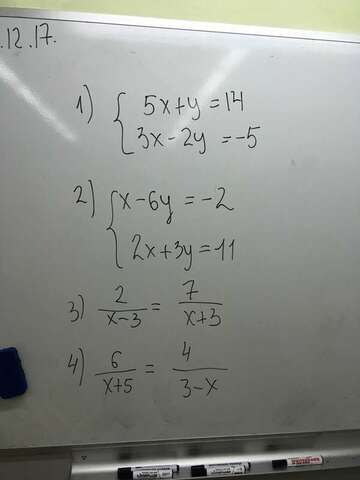 .12.17.
1) { 5x+y=14
3x-2y=-5
2) { x-6y=-2
2x+3y=11
3) 2/(x-3) = 7/(x+3)
4) 6/(x+5) = 4/(3-x)